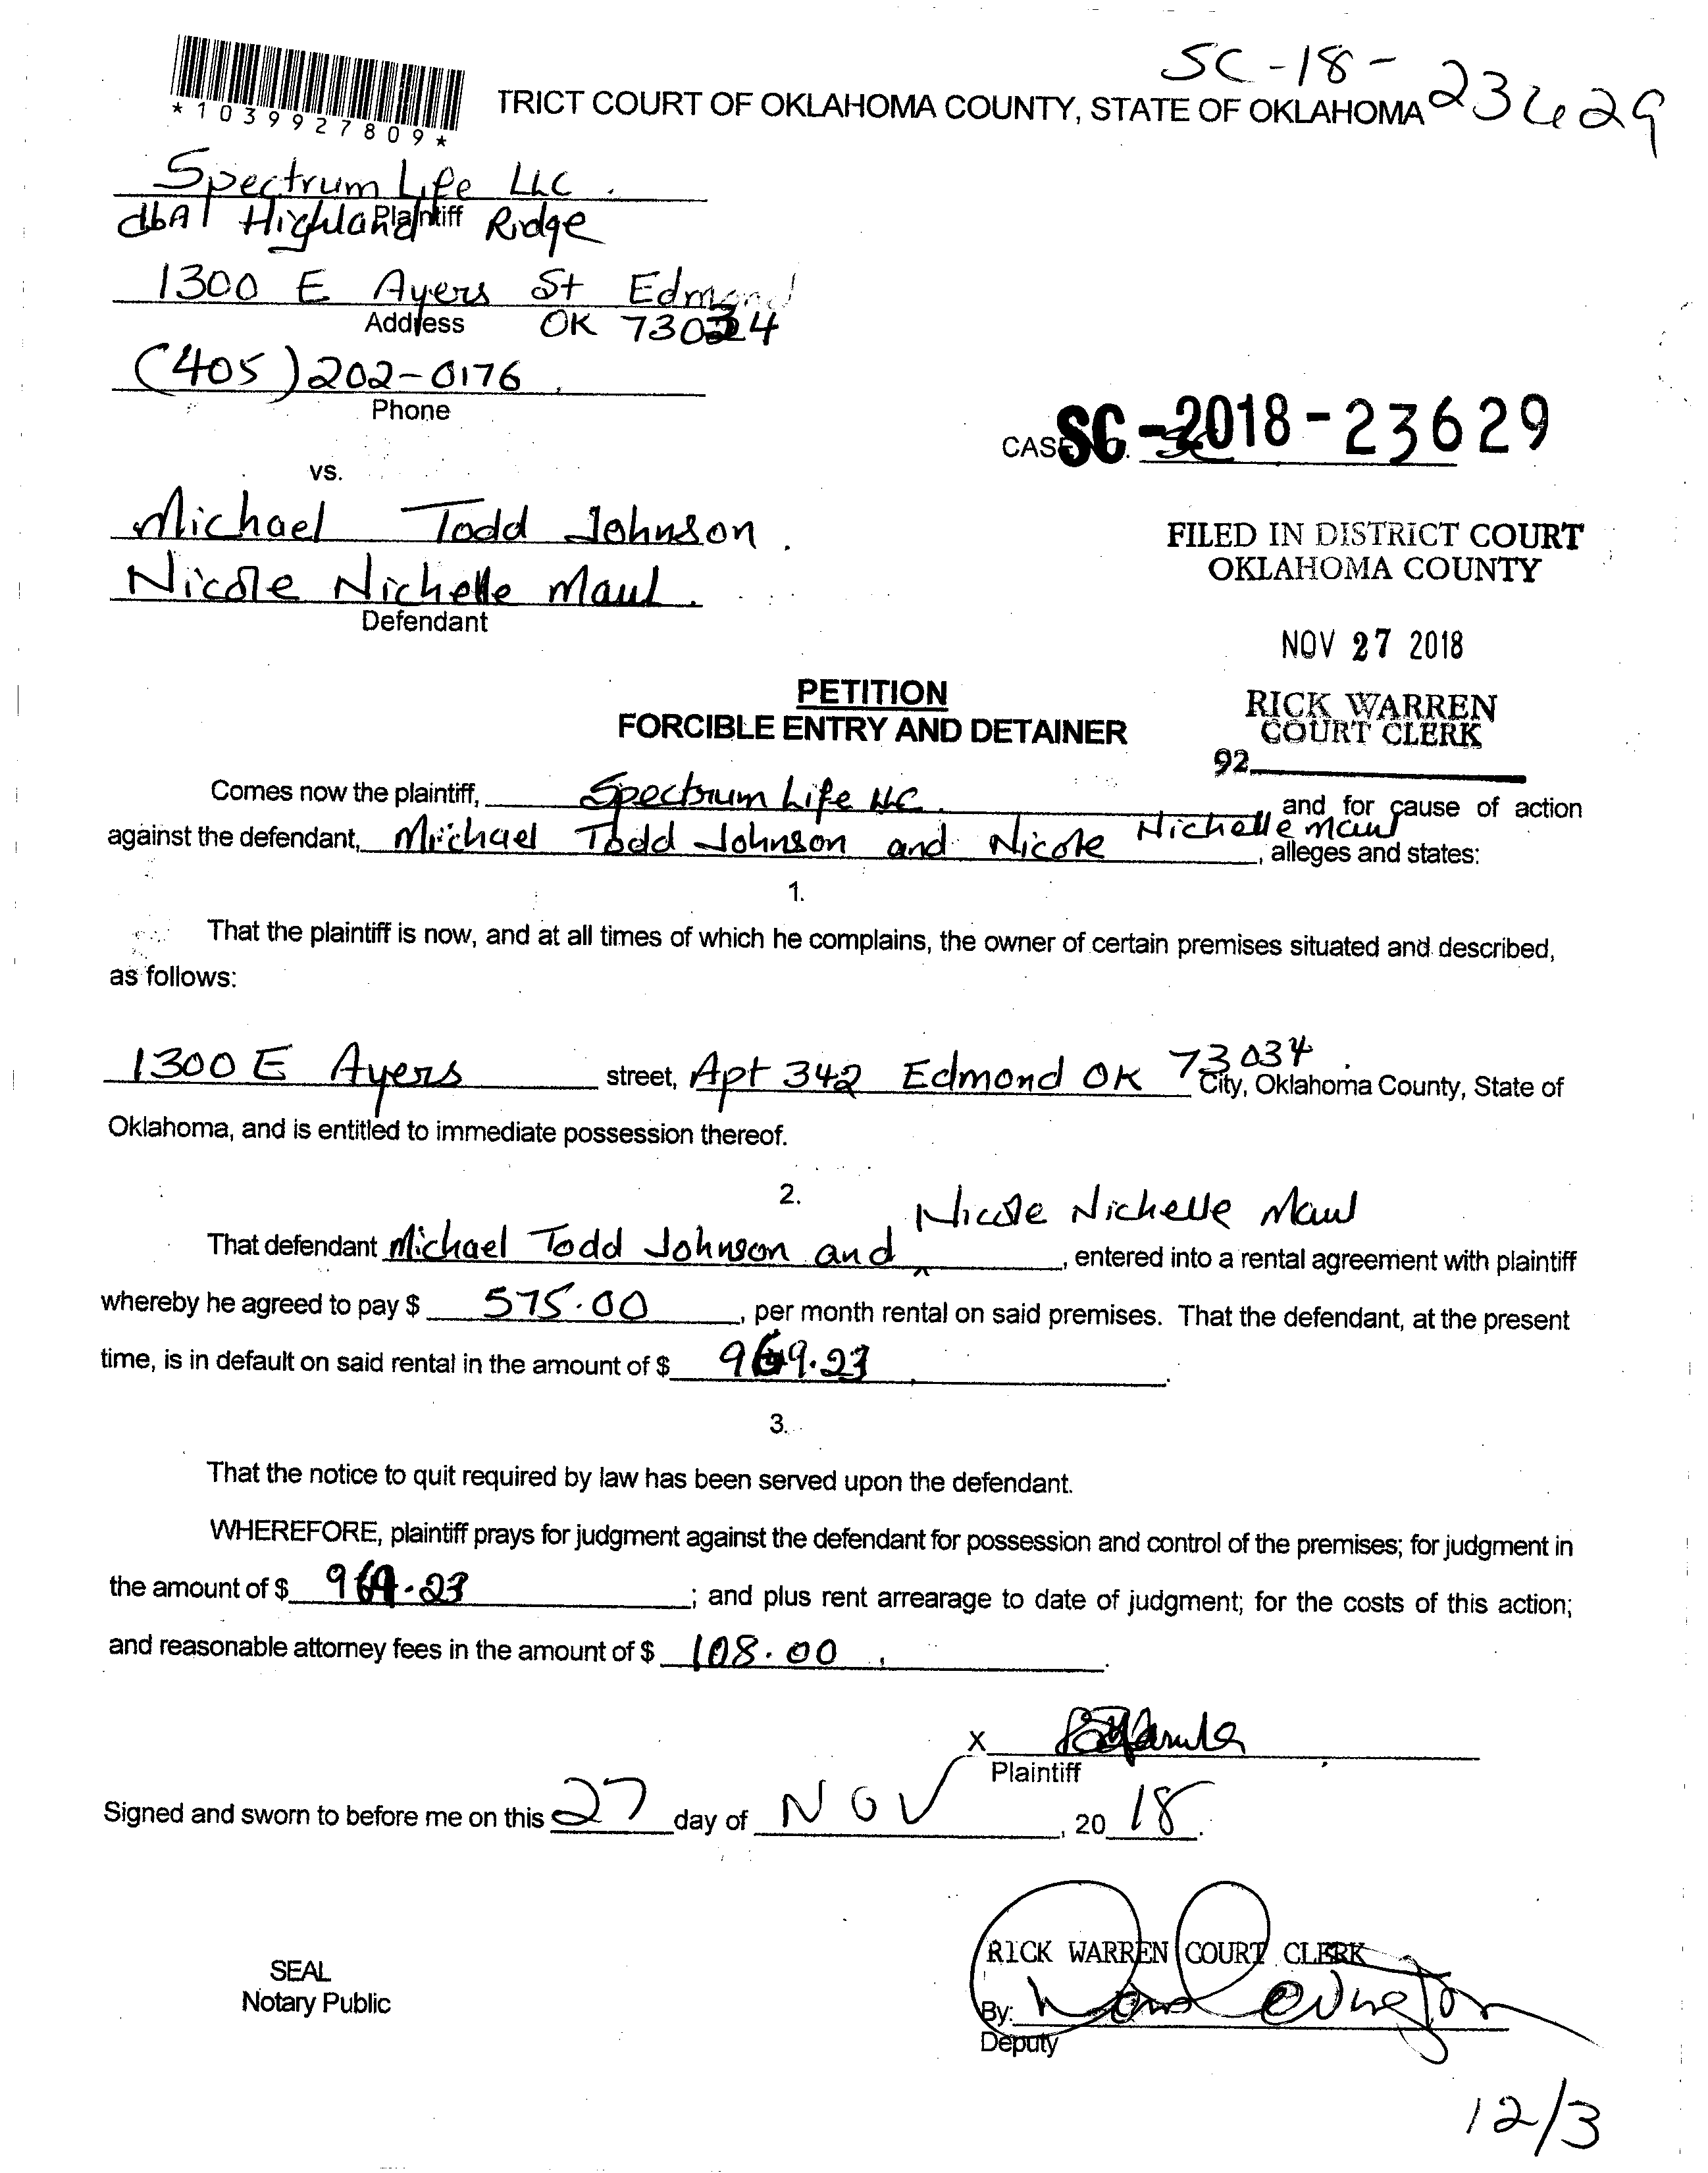 SC-18-23629
*1039927809*
TRICT COURT OF OKLAHOMA COUNTY, STATE OF OKLAHOMA
Spectrum Life LLC.
dbA Highland Ridge
Plaintiff
1300 E Ayers St Edmond
Address OK 73034
(405) 202-0176
Phone
CASE SC-2018-23629
vs.
Michael Todd Johnson.
Nicole Nichelle Maul.
Defendant
FILED IN DISTRICT COURT
OKLAHOMA COUNTY
NOV 27 2018
RICK WARREN
COURT CLERK
92
PETITION
FORCIBLE ENTRY AND DETAINER
Comes now the plaintiff, Spectrum Life LLC and for cause of action
against the defendant, Michael Todd Johnson and Nicole Nichelle Maul, alleges and states:
1.
That the plaintiff is now, and at all times of which he complains, the owner of certain premises situated and described,
as follows:
1300 E Ayers street, Apt 342 Edmond OK 73034. City, Oklahoma County, State of
Oklahoma, and is entitled to immediate possession thereof.
2.
That defendant Michael Todd Johnson and Nicole Nichelle Maul, entered into a rental agreement with plaintiff
whereby he agreed to pay $ 575.00, per month rental on said premises. That the defendant, at the present
time, is in default on said rental in the amount of $ 969.23.
3.
That the notice to quit required by law has been served upon the defendant.
WHEREFORE, plaintiff prays for judgment against the defendant for possession and control of the premises; for judgment in
the amount of $ 969.23; and plus rent arrearage to date of judgment; for the costs of this action;
and reasonable attorney fees in the amount of $ 108.00.
X
Plaintiff
Signed and sworn to before me on this 27 day of NOV, 20 18.
SEAL
Notary Public
RICK WARREN COURT CLERK
By:
Deputy
12/3